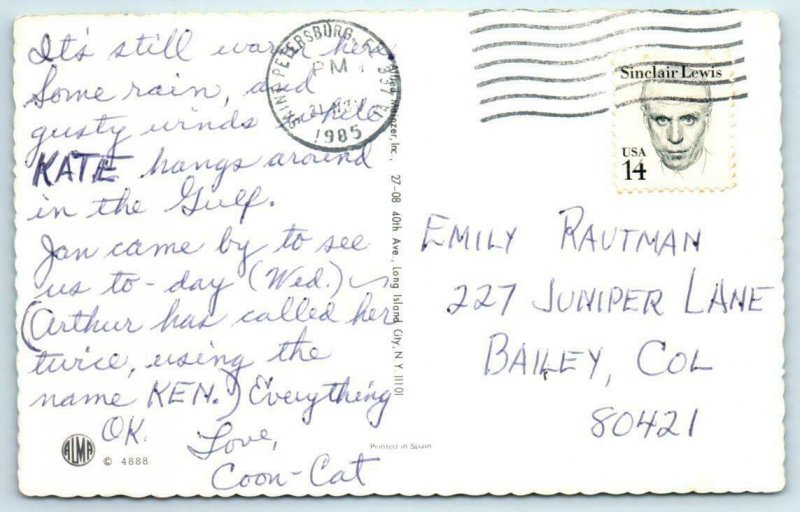 It's still warm here
Some rain, and
gusty winds while
KATE hangs around
in the Gulf.
Jan came by to see
us to-day (Wed.)
(Arthur has called her
twice, using the
name KEN.) Everything
OK. Love,
Coon-Cat
SAINT PETERSBURG, FL
PM
21 NOV
1985
Sinclair Lewis
USA
14
EMILY RAUTMAN
227 JUNIPER LANE
BAILEY, COL
80421
Inc., 27-08 40th Ave., Long Island City, N.Y. 11101
Printed in Spain
ALMA
© 4888